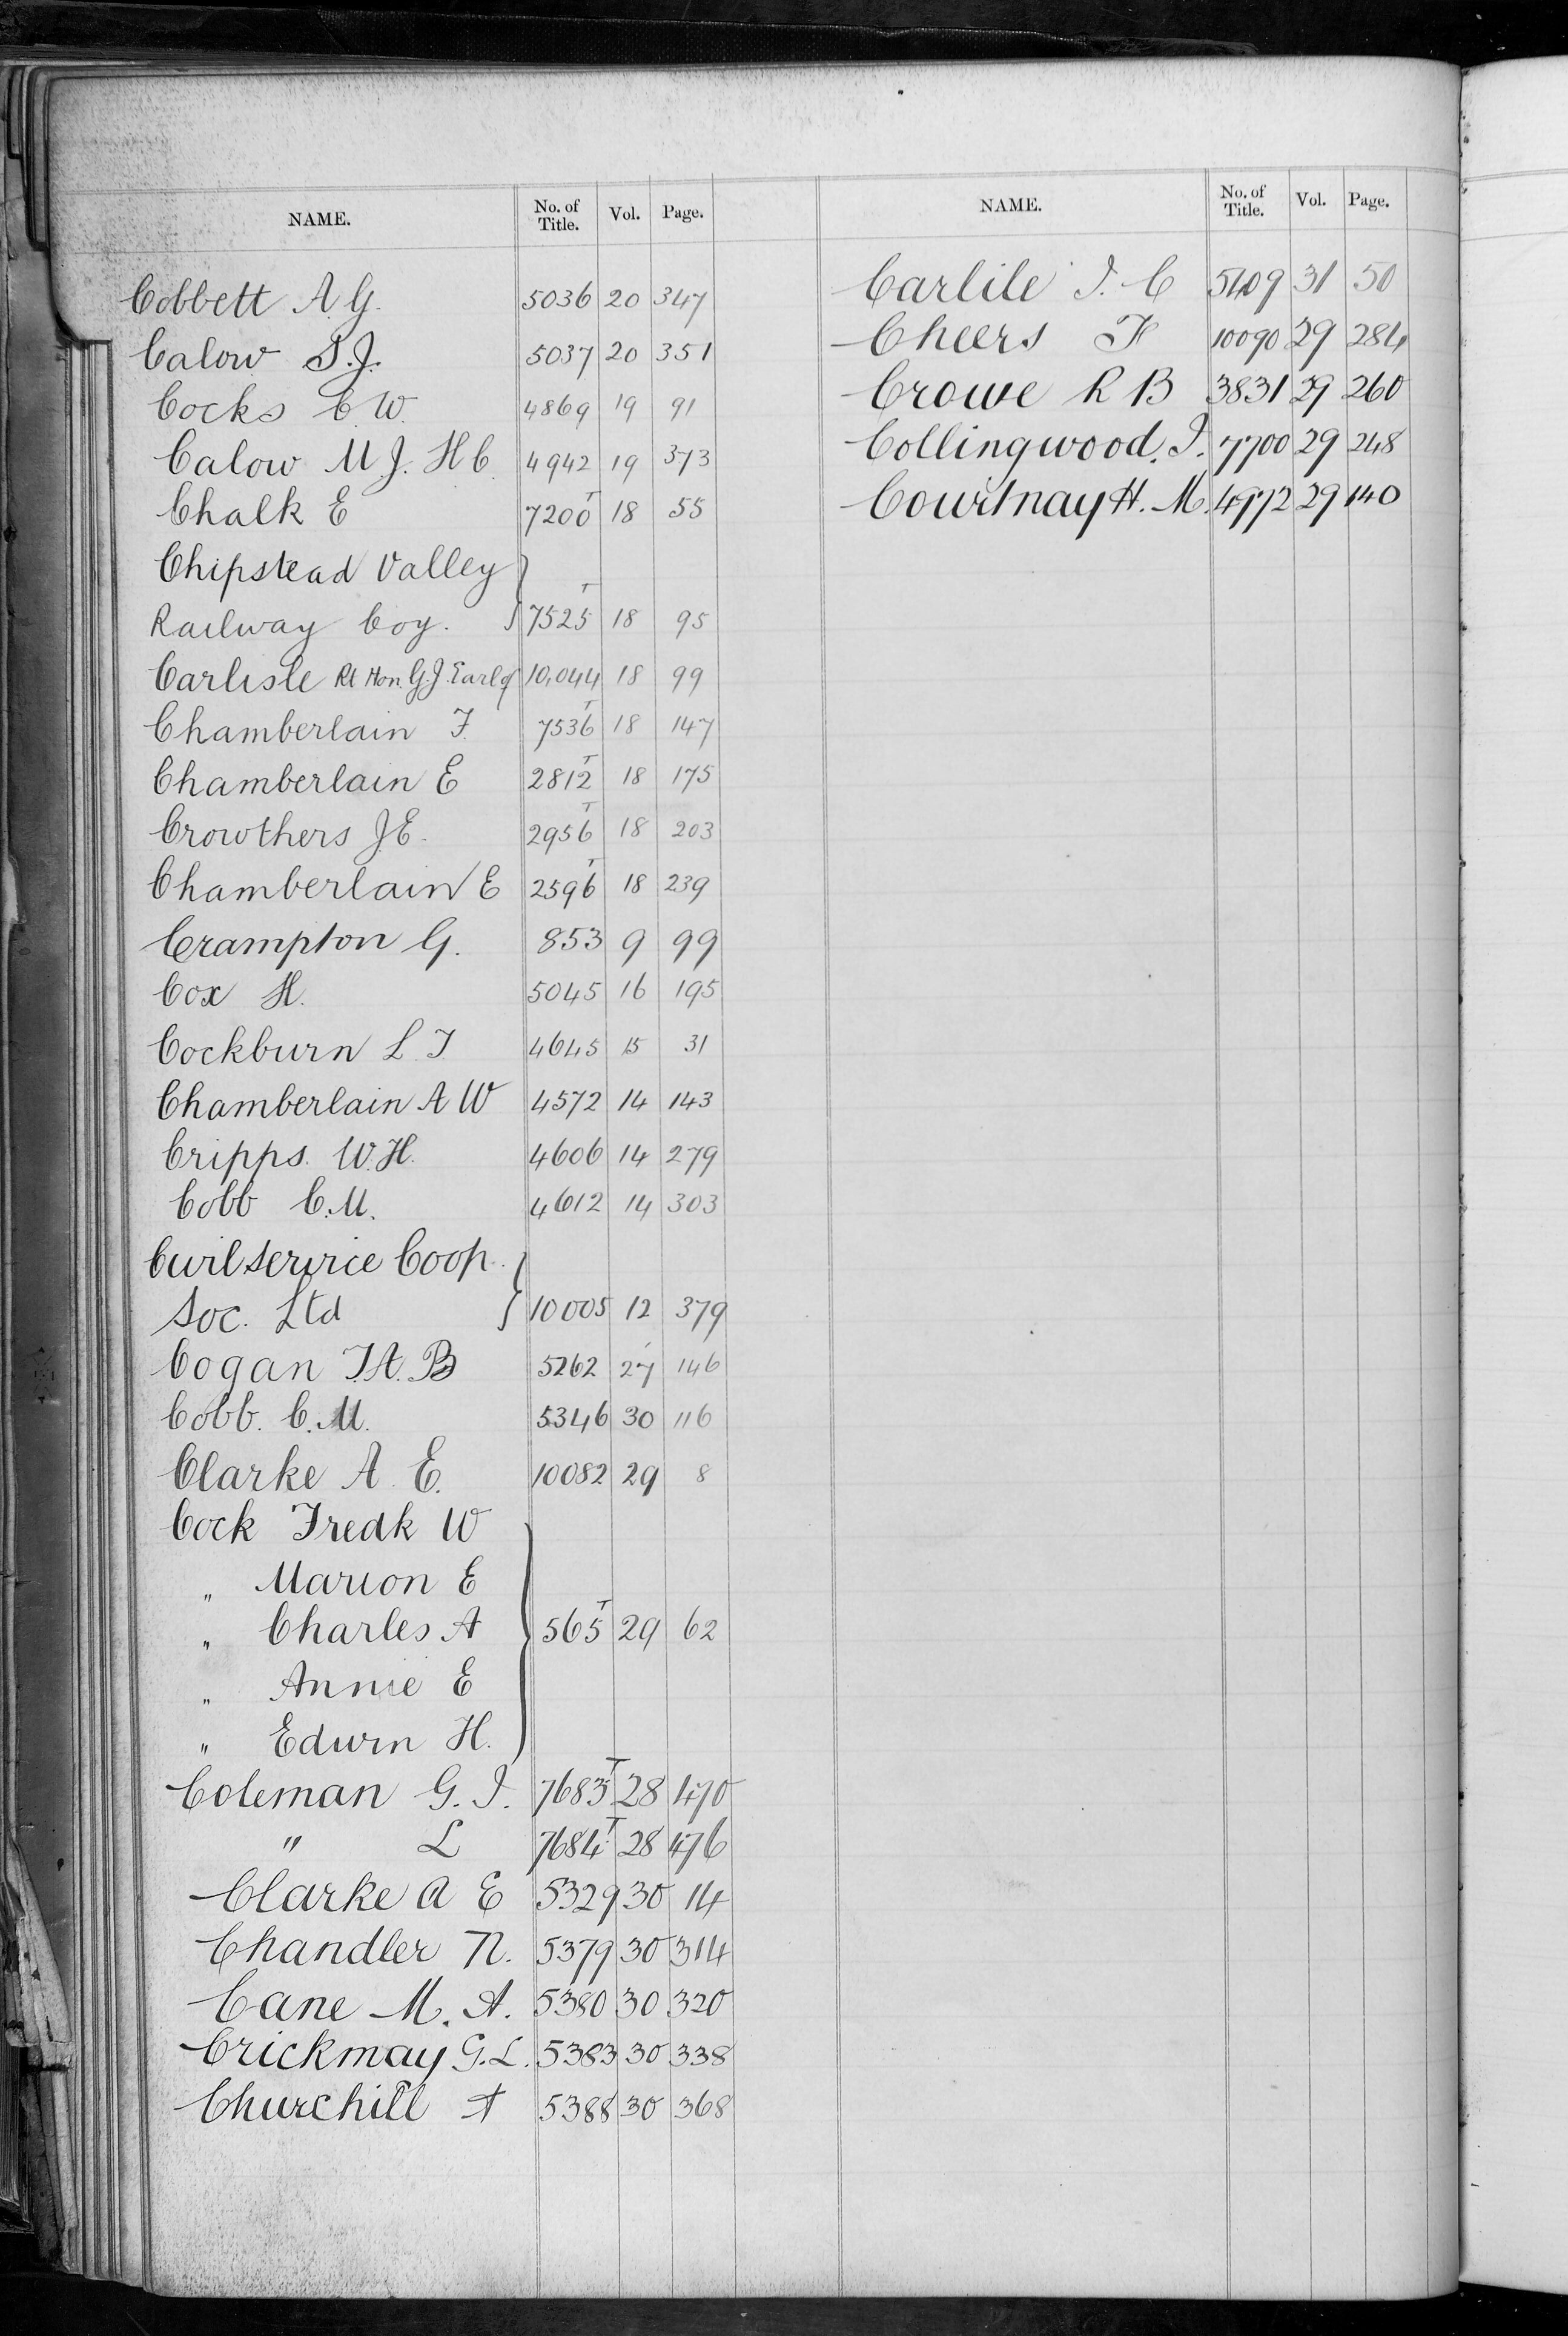 NAME. No. of Title. Vol. Page.
Cobbett A. G. 5036 20 347
Calow S. J. 5037 20 351
Cocks C. W. 4869 19 91
Calow M J. H C 4942 19 373
Chalk E 7200 T 18 55
Chipstead Valley }
Railway Coy. } 7525 T 18 95
Carlisle Rt Hon. G. J. Earl of 10,044 18 99
Chamberlain F. 7536 T 18 147
Chamberlain E 2812 T 18 175
Crowthers J E. 2956 T 18 203
Chamberlain E 2596 T 18 239
Crampton G. 853 9 99
Cox H. 5045 16 195
Cockburn L J 4645 15 31
Chamberlain A W 4572 14 143
Cripps. W. H. 4606 14 279
Cobb C. M. 4612 14 303
Civil Service Coop. }
Soc. Ltd } 10005 12 379
Cogan T. A. B 5262 27 146
Cobb. C. M. 5346 30 116
Clarke A. E. 10082 29 8
Cock Fredk W
" Marion E
" Charles A 565 T 29 62
" Annie E
" Edwin H.
Coleman G. J. 7683 T 28 470
" L 7684 T 28 476
Clarke A E 5329 30 14
Chandler N. 5379 30 314
Cane M. A. 5380 30 320
Crickmay G. L. 5383 30 338
Churchill A 5388 30 368
NAME. No. of Title. Vol. Page.
Carlile J. C 5409 31 50
Cheers F 10090 29 284
Crowe R B 3831 29 260
Collingwood. J. 7700 29 248
Courtnay H. M. 4972 29 140